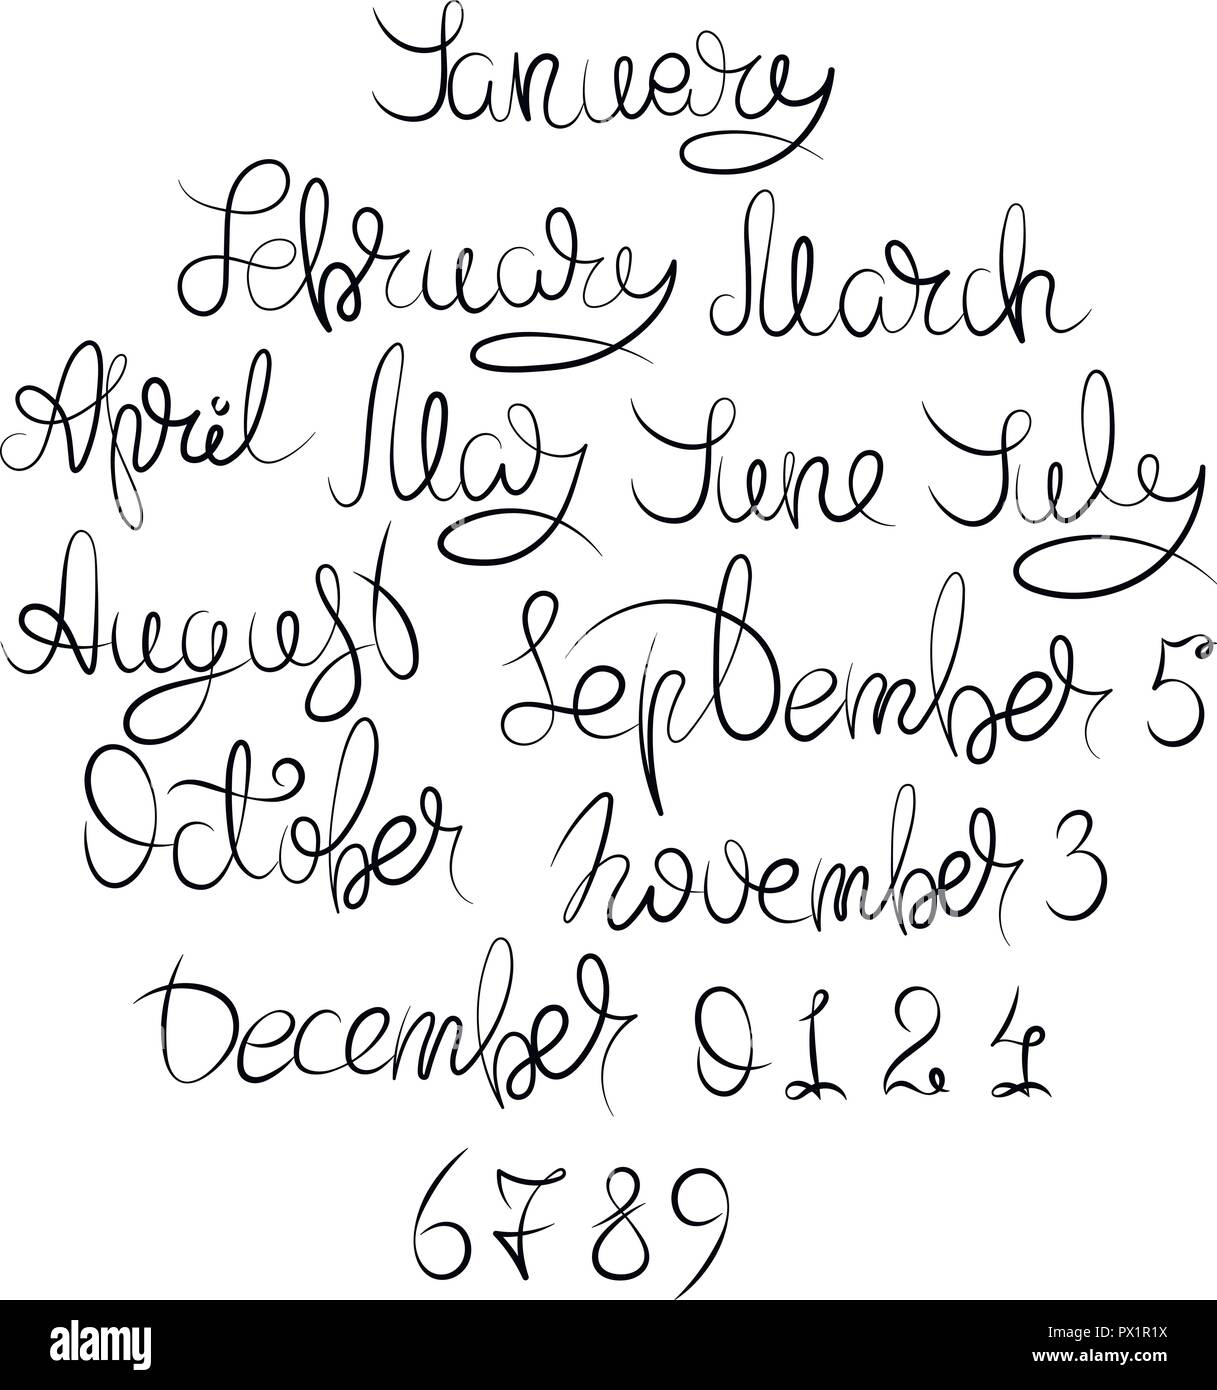 January
February March
April May June July
August September 5
October November 3
December 0 1 2 4
6 7 8 9
alamy
Image ID: PX1R1X
www.alamy.com